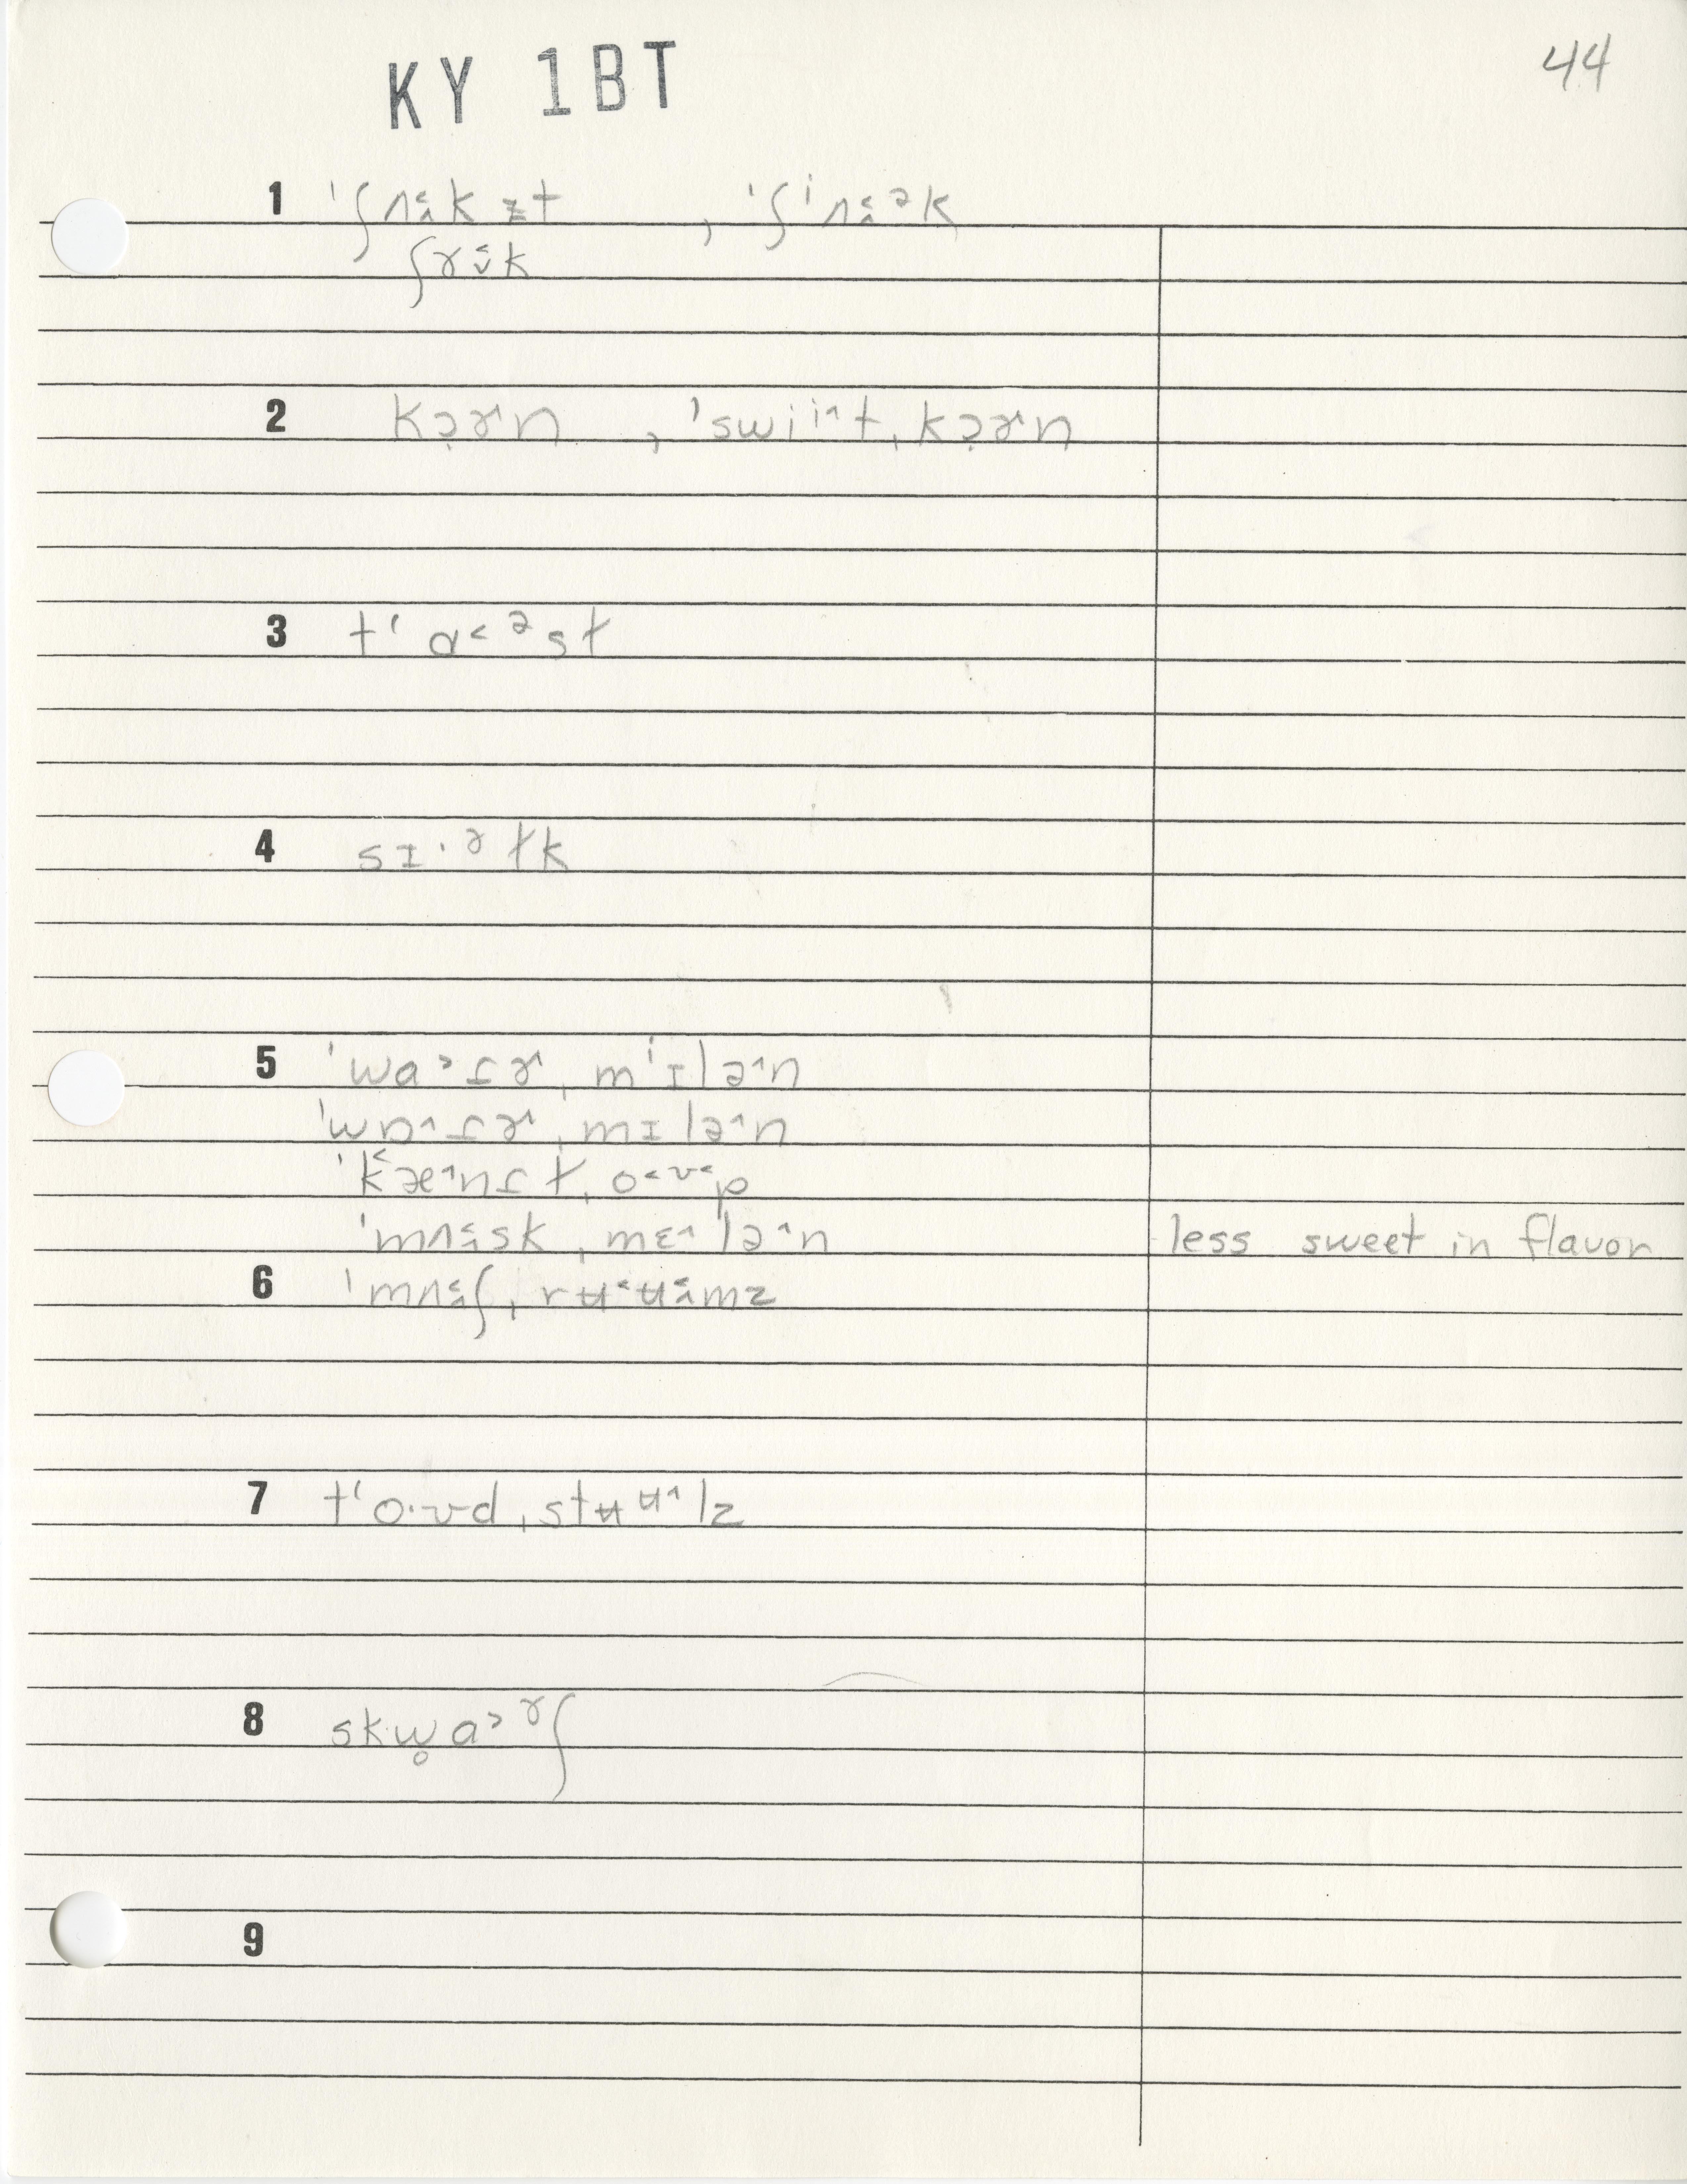 KY 1BT
44
1 ˈʃʌ̭̂k ɨt , ˈʃˈʌ̭̂ᵊk
ʃɤ̬̂k
2 kɔ̣ɚn , ˈswiiˆt ˌkɔ̣ɚn
3 tʻɑ˂ᵊst
4 sɪ·ᵊɫk
5 ˈwɑ˃ʃɚˌmɪlə^n
ˈwɒ^ʃɚˌmɪlə^n
ˈkæ^nʃtˌo˂ʊ˂p
ˈmʌ̭̂skˌmɛ^lə^n less sweet in flavor
6 ˈmʌ̭̂ʃˌrʉ˂ʉmz
7 tʻo·ʊdˌstʉʉ^lz
8 skw̥ɑ˃ɤʃ
9